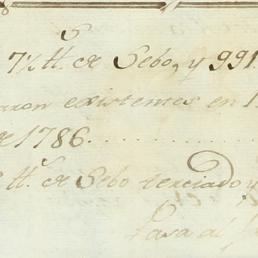 8
S
7½ tt. de Sebo, y 991
aron existentes en 1
de 1786.........
tt. de Sebo terciado y
Pasa al